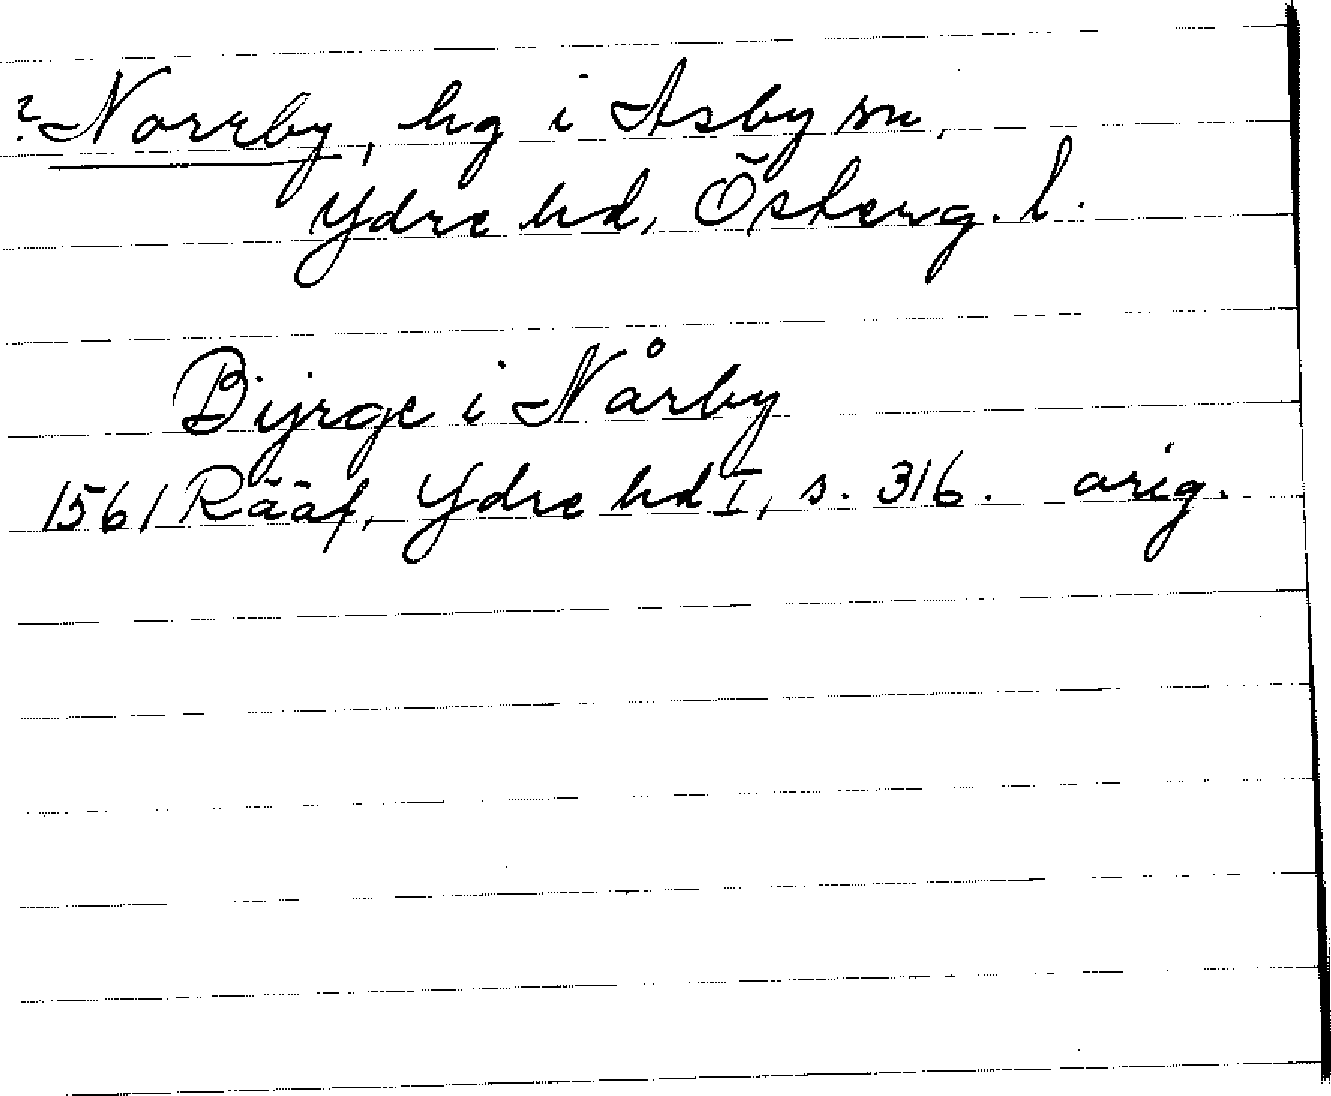 ? Norrby, hg i Asby sn,
Ydre hd, Österg. l.
Bijrge i Nårby
1561 Rääf, Ydre hd I, s. 316. orig.